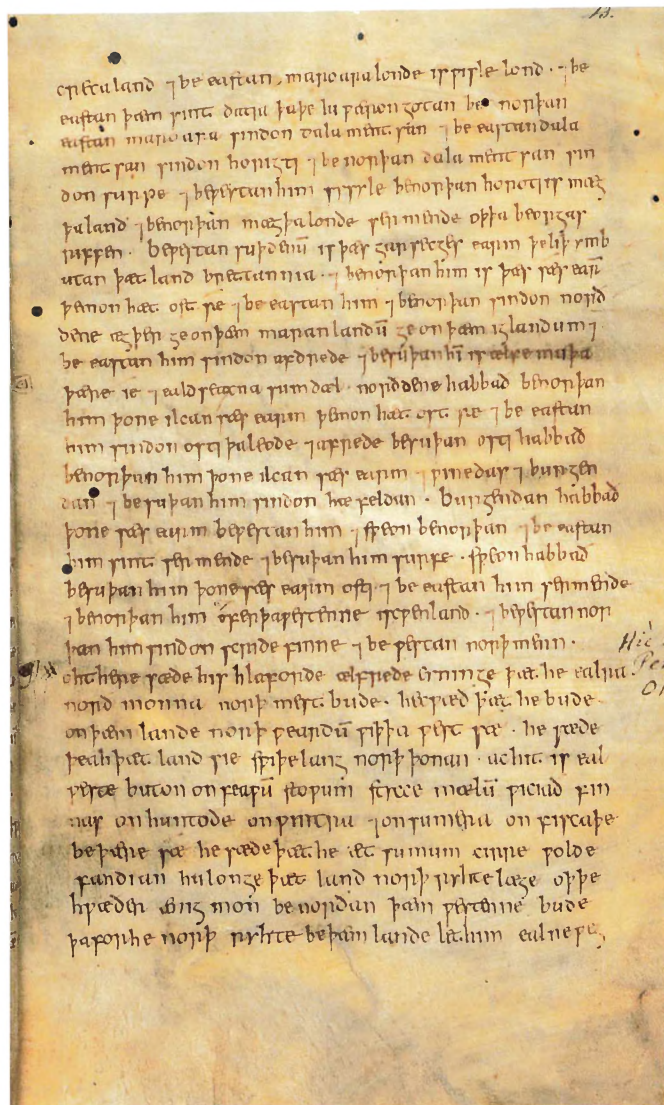 13.
creca land ⁊ be eastan maroara londe is wisle lond · ⁊ be
eastan þæm sint datia þa þe iu wæron gotan be norþan
eastan maroara sindon dalamentsan ⁊ be eastan dala
mentsan sindon horigti ⁊ be norþan dalamentsan sin
don surpe ⁊ be westan him sysyle be norþan horoti is mæg
þa land ⁊ be norþan mægþa londe sermende oþþa beorgas
riffen · be westan suþdenū is þæs garsecges earm þe liþ ymb
utan þæt land brettannia · ⁊ be norþan him is þæs sæs earm̄
þe mon hæt ost sæ ⁊ be eastan him ⁊ be norþan sindon nord
dene ægþer ge on þæm maran landū ge on þæm iglandum ⁊
be eastan him sindon afdrede ⁊ be suþan hī is ælfe muþa
þære ie ⁊ eald seaxna sum dæl · norddene habbad be norþan
him þone ilcan sæs earm þe mon hæt ost sæ ⁊ be eastan
him sindon osti þa leode ⁊ afrede be suþan osti habbad
be norþan him þone ilcan sæs earm ⁊ winedas ⁊ burgen
dan ⁊ be suþan him sindon hæfeldan · Burgendan habbad
þone sæs earm be westan him ⁊ sweon be norþan ⁊ be eastan
him sint sermende ⁊ be suþan him surfe · sweon habbad
be suþan him þone sæs earm osti ⁊ be eastan him sermende
⁊ be norþan him ofer þa westenne is cwenland · ⁊ be westan nor
þan him sindon scride finne ⁊ be westan norþ menn ·
ohthere sæde his hlaforde ælfrede cyninge þæt he ealra
nord monna norþ mest bude · he cwæd þæt he bude
on þæm lande norþ weardū wiþ þa west sæ · he sæde
þeah þæt land sie swiþe lang norþ þonan · ac hit is eal
weste buton on feawū stowum stycce mælū wiciad fin
nas on huntode on wintra ⁊ on sumera on fiscaþe
be þære sæ he sæde þæt he æt sumum cirre wolde
fandian hu longe þæt land norþ ryhte læge oþþe
hwæder ænig mon be nordan þæm westenne bude
þa for he norþ ryhte be þæm lande let him ealne weg